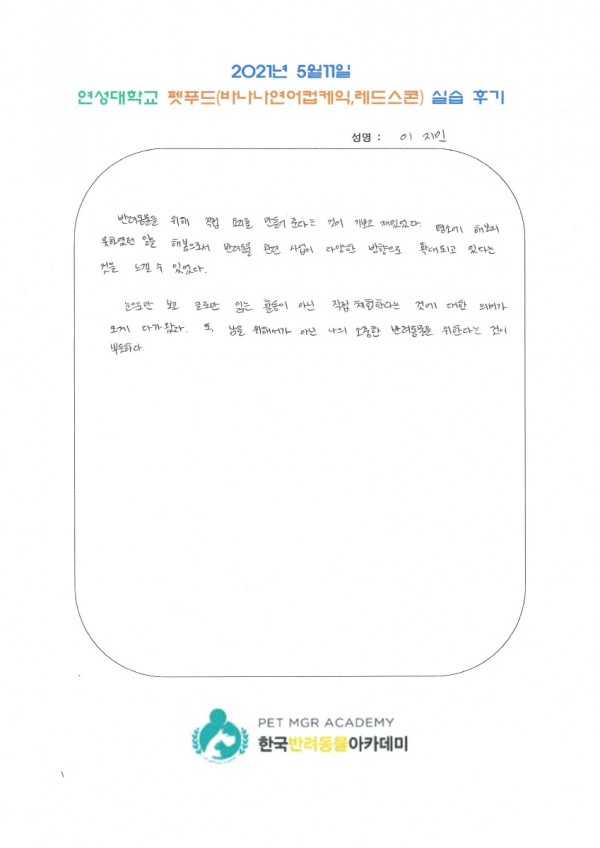 2021년 5월11일
연성대학교 펫푸드(바나나연어컵케익,레드스콘) 실습 후기
성명 : 이 지인
반려동물을 위해 직접 요리를 만들어 준다는 것이 기쁘고 재밌었다. 평소에 해보지
못하였던 일을 해봄으로서 반려동물 관련 사업이 다양한 방향으로 확대되고 있다는
것을 느낄 수 있었다.
눈으로만 보고 글로만 읽는 활동이 아닌 직접 체험한다는 것에 대한 의미가
크게 다가왔다. 또, 남을 위해서가 아닌 나의 소중한 반려동물을 위한다는 것이
뿌듯하다.
PET MGR ACADEMY
한국반려동물아카데미